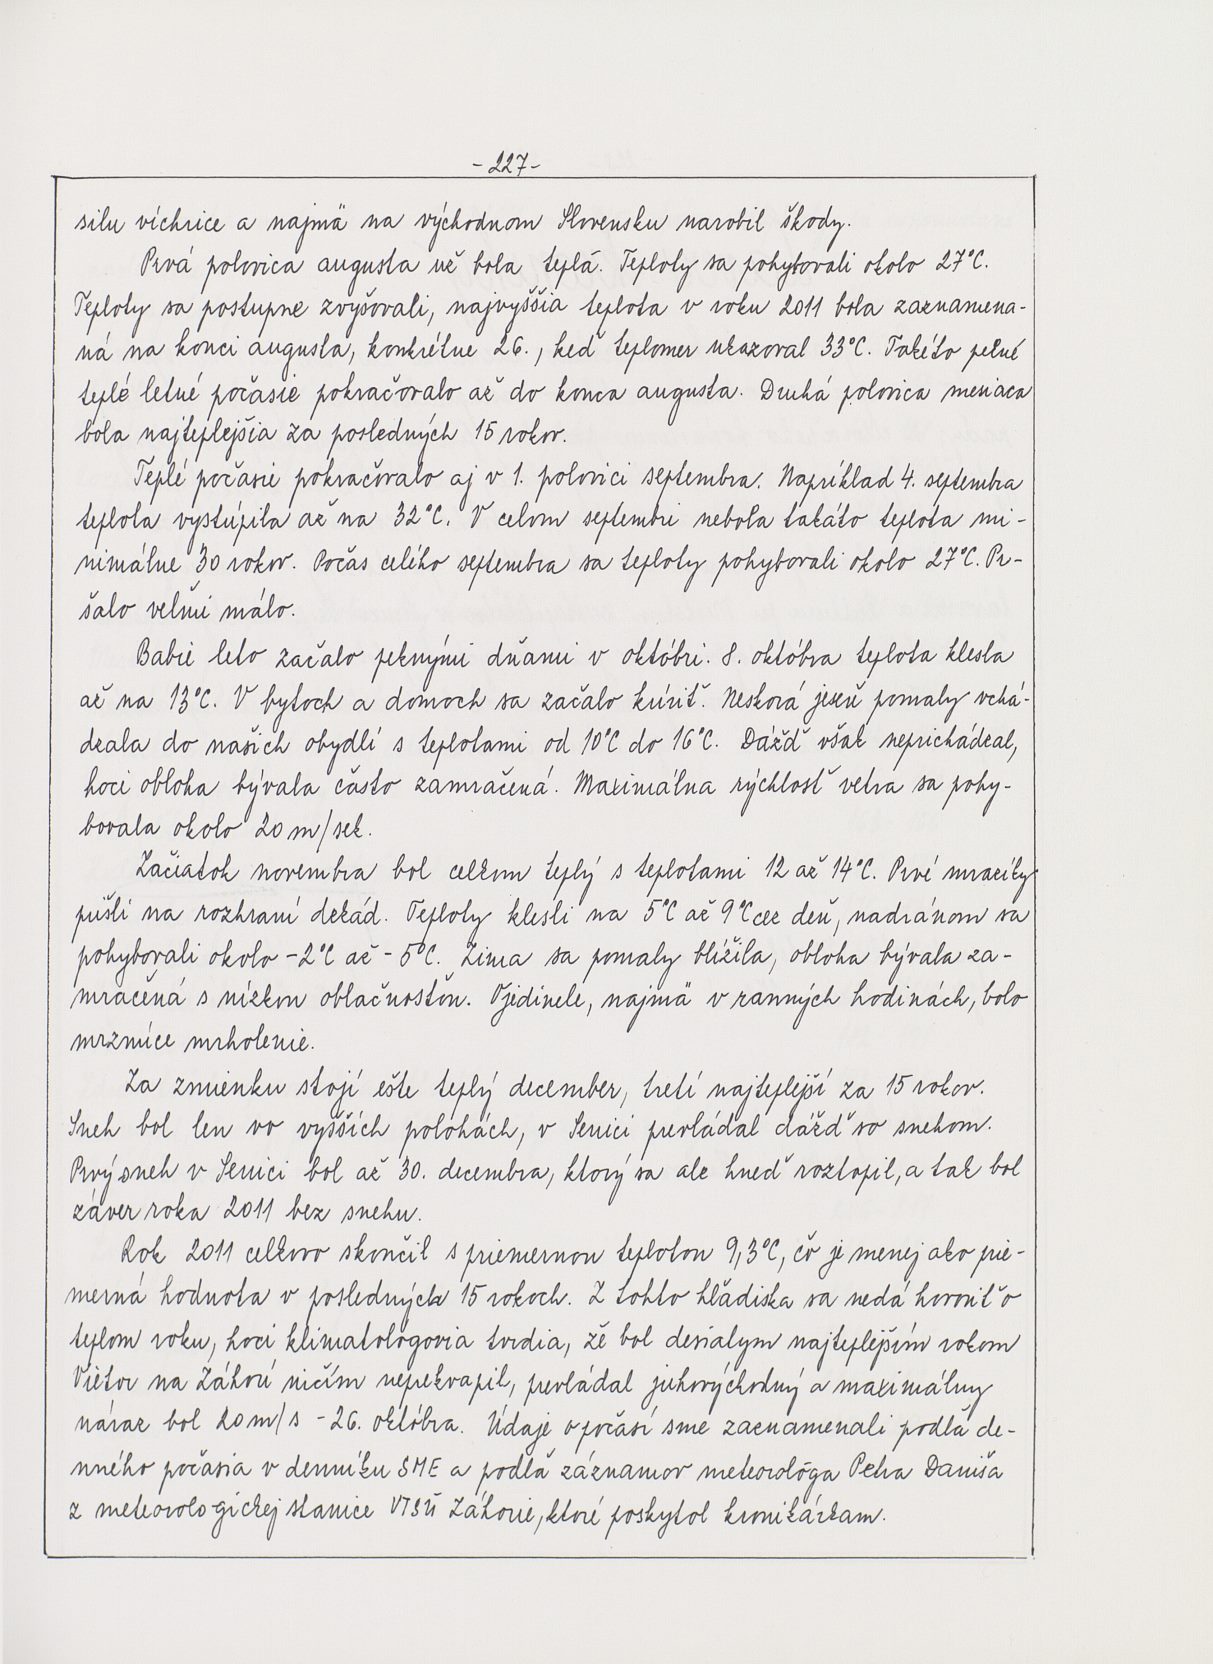 -227-
silu víchrice a najmä na východnom Slovensku narobil škody.
Prvá polovica augusta už bola teplá. Teploty sa pohybovali okolo 27°C.
Teploty sa postupne zvyšovali, najvyššia teplota v roku 2011 bola zaznamena-
ná na konci augusta, konkrétne 26., keď teplomer ukazoval 33°C. Takéto pekné
teplé letné počasie pokračovalo až do konca augusta. Druhá polovica mesiaca
bola najteplejšia za posledných 15 rokov.
Teplé počasie pokračovalo aj v 1. polovici septembra. Napríklad 4. septembra
teplota vystúpila až na 32°C. V celom septembri nebola takáto teplota mi-
nimálne 30 rokov. Počas celého septembra sa teploty pohybovali okolo 27°C. Pr-
šalo veľmi málo.
Babie leto začalo peknými dňami v októbri. 8. októbra teplota klesla
až na 13°C. V bytoch a domoch sa začalo kúriť. Neskorá jeseň pomaly vchá-
dzala do našich obydlí s teplotami od 10°C do 16°C. Dážď však neprichádzal,
hoci obloha bývala často zamračená. Maximálna rýchlosť vetra sa pohy-
bovala okolo 20 m/sek.
Začiatok novembra bol celkom teplý s teplotami 12 až 14°C. Prvé mrazíky
prišli na rozhraní dekád. Teploty klesli na 5°C až 9°C cez deň, nadránom sa
pohybovali okolo -2°C až -5°C. Zima sa pomaly blížila, obloha bývala za-
mračená s nízkou oblačnosťou. Ojedinele, najmä v ranných hodinách, bolo
mrznúce mrholenie.
Za zmienku stojí ešte teplý december, tretí najteplejší za 15 rokov.
Sneh bol len vo vyšších polohách, v Senici prevládal dážď so snehom.
Prvý sneh v Senici bol až 30. decembra, ktorý sa ale hneď roztopil, a tak bol
záver roka 2011 bez snehu.
Rok 2011 celkovo skončil s priemernou teplotou 9,3°C, čo je menej ako prie-
merná hodnota v posledných 15 rokoch. Z tohto hľadiska sa nedá hovoriť o
teplom roku, hoci klimatológovia tvrdia, že bol desiatym najteplejším rokom
Vietor na Záhorí ničím neprekvapil, prevládal juhovýchodný a maximálny
náraz bol 20 m/s - 26. októbra. Údaje o počasí sme zaznamenali podľa de-
nného počasia v denníku SME a podľa záznamov meteorológa Petra Daniša
z meteorologickej stanice VTSÚ Záhorie, ktoré poskytol kronikárkam.